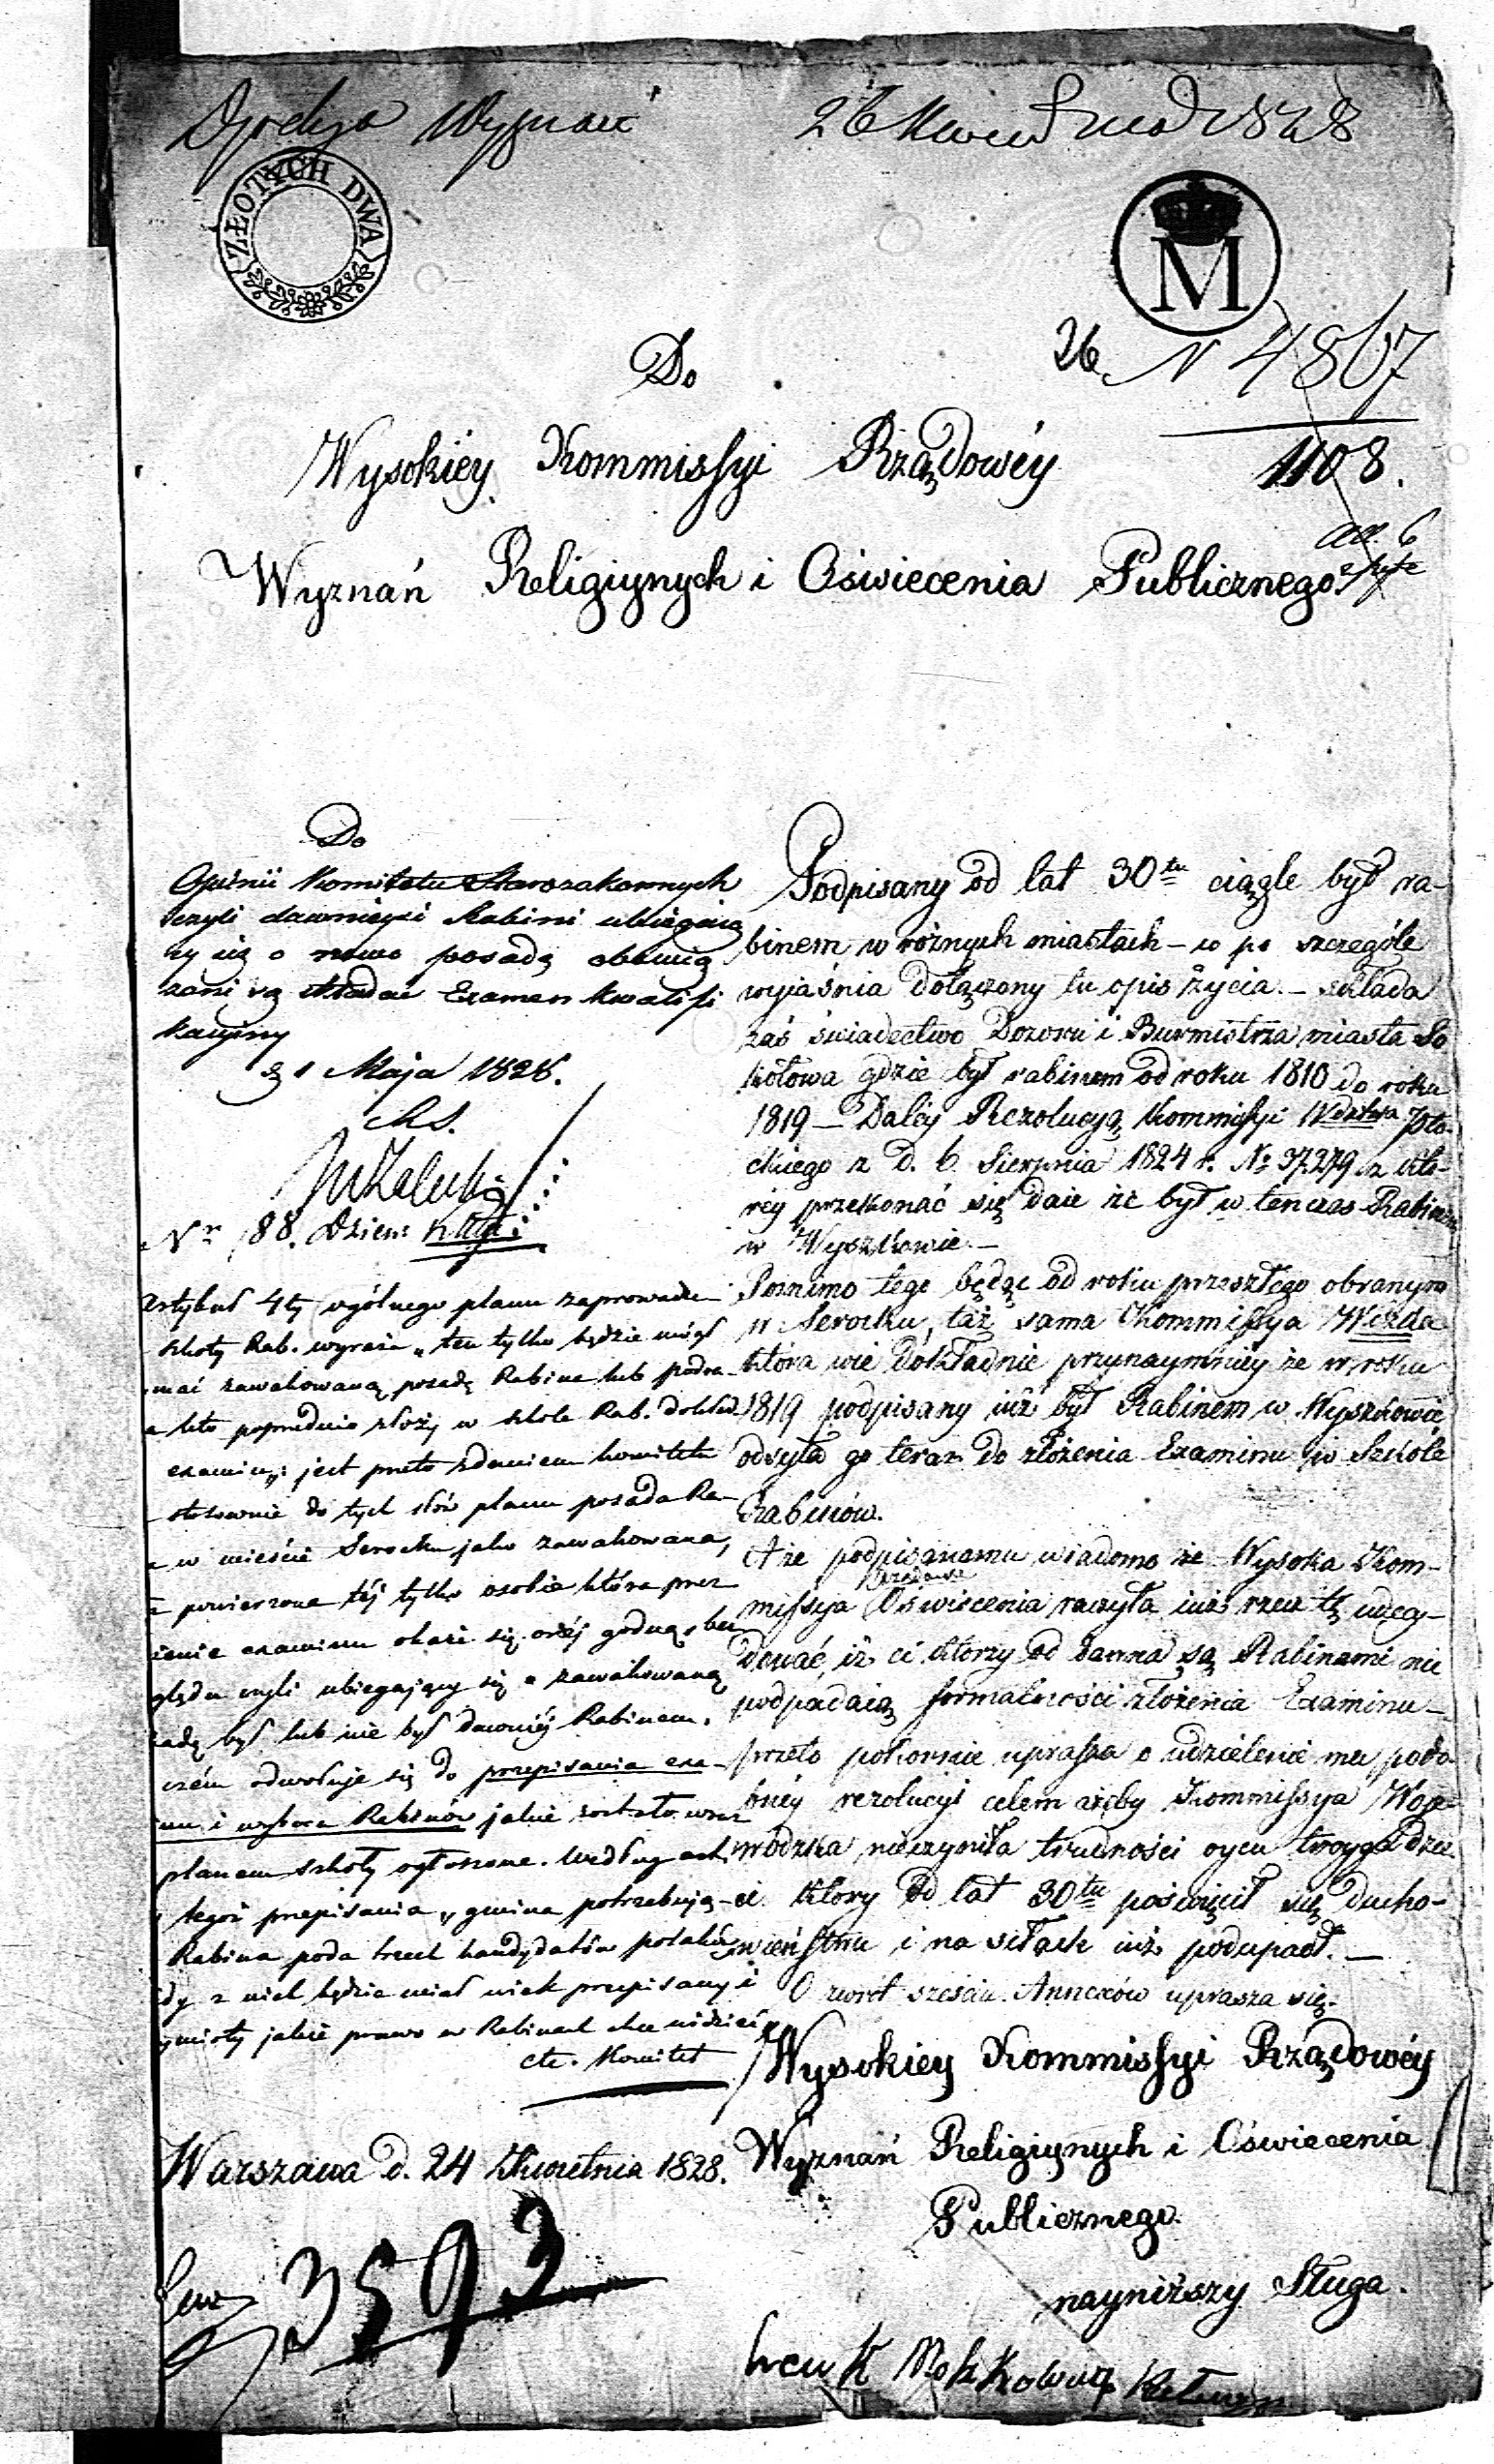 26 Kwietnia 1828
ZŁOTYCH DWA
M
26 N 4867
1108.
Do
Wysokiéy Kommissyi Rządowéy
Wyznań Religiynych i Oświecenia Publicznego
Do
Opinii Komitetu Starozakonnych
czyli dawnieysi Rabini ubiegaią
cy się o nowe posadą obowią
zani są składać Examen kwalifi
kacyiny
d 1 Maja 1828.
Nr 188. Dzien:
Artykuł 4ty ogólnego planu zaprowadze-
szkoły Rab. wyraża „ten tylko będzie mógł
zawakowaną posadę Rabina lub podra-
kto poprzednio złoży w szkole Rab. dokład.
examin„: jest przeto zdaniem komitetu
stosownie do tych słów planu posada Ra-
w mieście Serocku jako zawakowana,
powierzona téj tylko osobie która przez
żenie examinu okaże się onéj godną, bez
ględu czyli ubiegający się o zawakowaną
sadę był lub nie był dawniéj Rabinem.
czém odwołuje się do przepisania exa-
inu i wyboru Rabinów jakie zostało wraz
planem szkoły ogłoszone. Według art.
tegoż przepisania „gmina potrzebują-
Rabina poda trzech kandydatów
dy z nich będzie miał wiek przepisany i
ymioty jakie prawo w Rabinach chce widzieć„
etc. Komitet
Podpisany od lat 30tu ciągle był ra-
binem w różnych miastach – co po szczególe
wyiaśnia dołączony tu opis życia. – składa
zaś świadectwo Dozoru i Burmistrza miasta So
kołowa gdzie był rabinem od roku 1810 do roku
1819 – Daléy Rezolucyą Kommissyi Wdztwa Pło-
ckiego z d. 6 Sierpnia 1824 r. No 37279 z któ-
réy przekonać się daie że był w tenczas Rabinem
w Wyszkowie. –
Pomimo tego będąc od roku przeszłego obranym
w Serocku, taż sama Kommissya Wdzka
która wie dokładnie przynaymniéy że w roku
1819 podpisany iuż był Rabinem w Wyszkowie
odsyła go teraz do złożenia Examinu w Szkole
Rabinów.
A że podpisanemu wiadomo że Wysoka Kom-
Rządowa
missya Oświecenia raczyła iuż rzecz tę udecy-
dować, iż ci którzy od dawna są Rabinami nie
podpadaią formalności złożenia Examinu –
przeto pokornie uprasza o udzielenie mu podo-
bnéy rezolucyi celem ażeby Kommissya Woje-
wódzka nieczyniła trudności oycu troyga dzie-
ci który od lat 30tu poświęcił się ducho-
wieństwu i na siłach iuż podupadł. –
O zwrot sześciu Annexów uprasza się.
Wysokiéy Kommissyi Rządowéy
Wyznań Religiynych i Oświecenia
Publicznego
nayniższy Sługa.
Warszawa d. 24 Kwietnia 1828.
3593